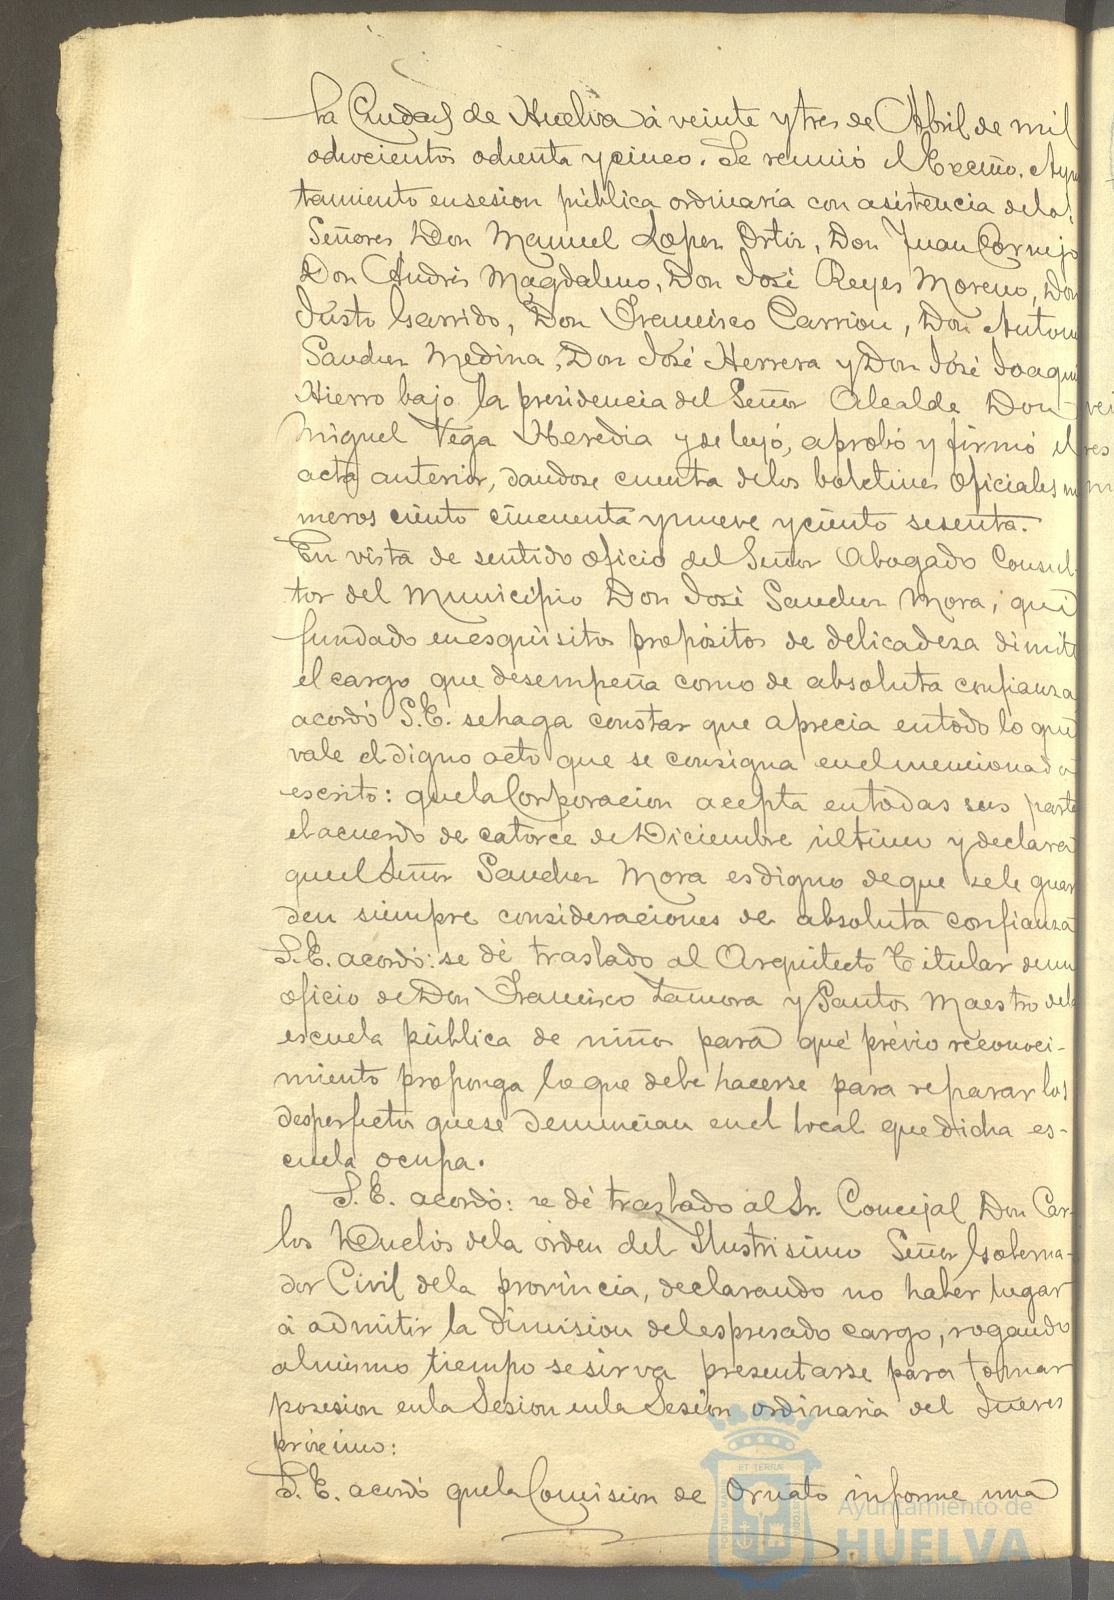 la Ciudad de Huelva à veinte y tres de Abril de mil
ochocientos ochenta y cinco. Se reunió el Excmo. Ayun
tamiento en sesion pública ordinaria con asistencia de los
Señores Don Manuel Lopez Ortiz, Don Juan Cornejo
Don Andrés Magdaleno, Don José Reyes Moreno, Don
Justo Garrido, Don Francisco Carrion, Don Antonio
Sanchez Medina, Don José Herrera y Don José Joaquin
Hierro bajo la presidencia del Señor Alcalde Don
Miguel Vega Heredia y se leyó, aprobó y firmó el
acta anterior, dandose cuenta de los boletines oficiales nu
meros ciento cincuenta y nueve y ciento sesenta.
En vista de sentido oficio del Señor Abogado Consul
tor del Municipio Don José Sanchez Mora, que
fundado en esquisitos propósitos de delicadeza dimite
el cargo que desempeña como de absoluta confianza
acordó S.E. se haga constar que aprecia en todo lo que
vale el digno acto que se consigna en el mencionado
escrito: que la Corporacion acepta en todas sus partes
el acuerdo de catorce de Diciembre último y declara
que el Señor Sanchez Mora es digno de que se le guar
den siempre consideraciones de absoluta confianza
S.E. acordó: se dé traslado al Arquitecto Titular de un
oficio de Don Francisco Zamora y Santos Maestro de la
escuela pública de niños para que prévio reconoci-
miento proponga lo que debe hacerse para reparar los
desperfectos que se denuncian en el local que dicha es-
cuela ocupa.
S.E. acordó: se dé traslado al Sr. Concejal Don Car-
los Duclós de la órden del Ilustrisimo Señor Goberna-
dor Civil de la provincia, declarando no haber lugar
à admitir la dimision del espresado cargo, rogando
al mismo tiempo se sirva presentarse para tomar
posesion en la Sesion en la Sesion ordinaria del Jueves
próximo:
S.E. acordó que la Comision de Ornato informe una
Ayuntamiento de
HUELVA